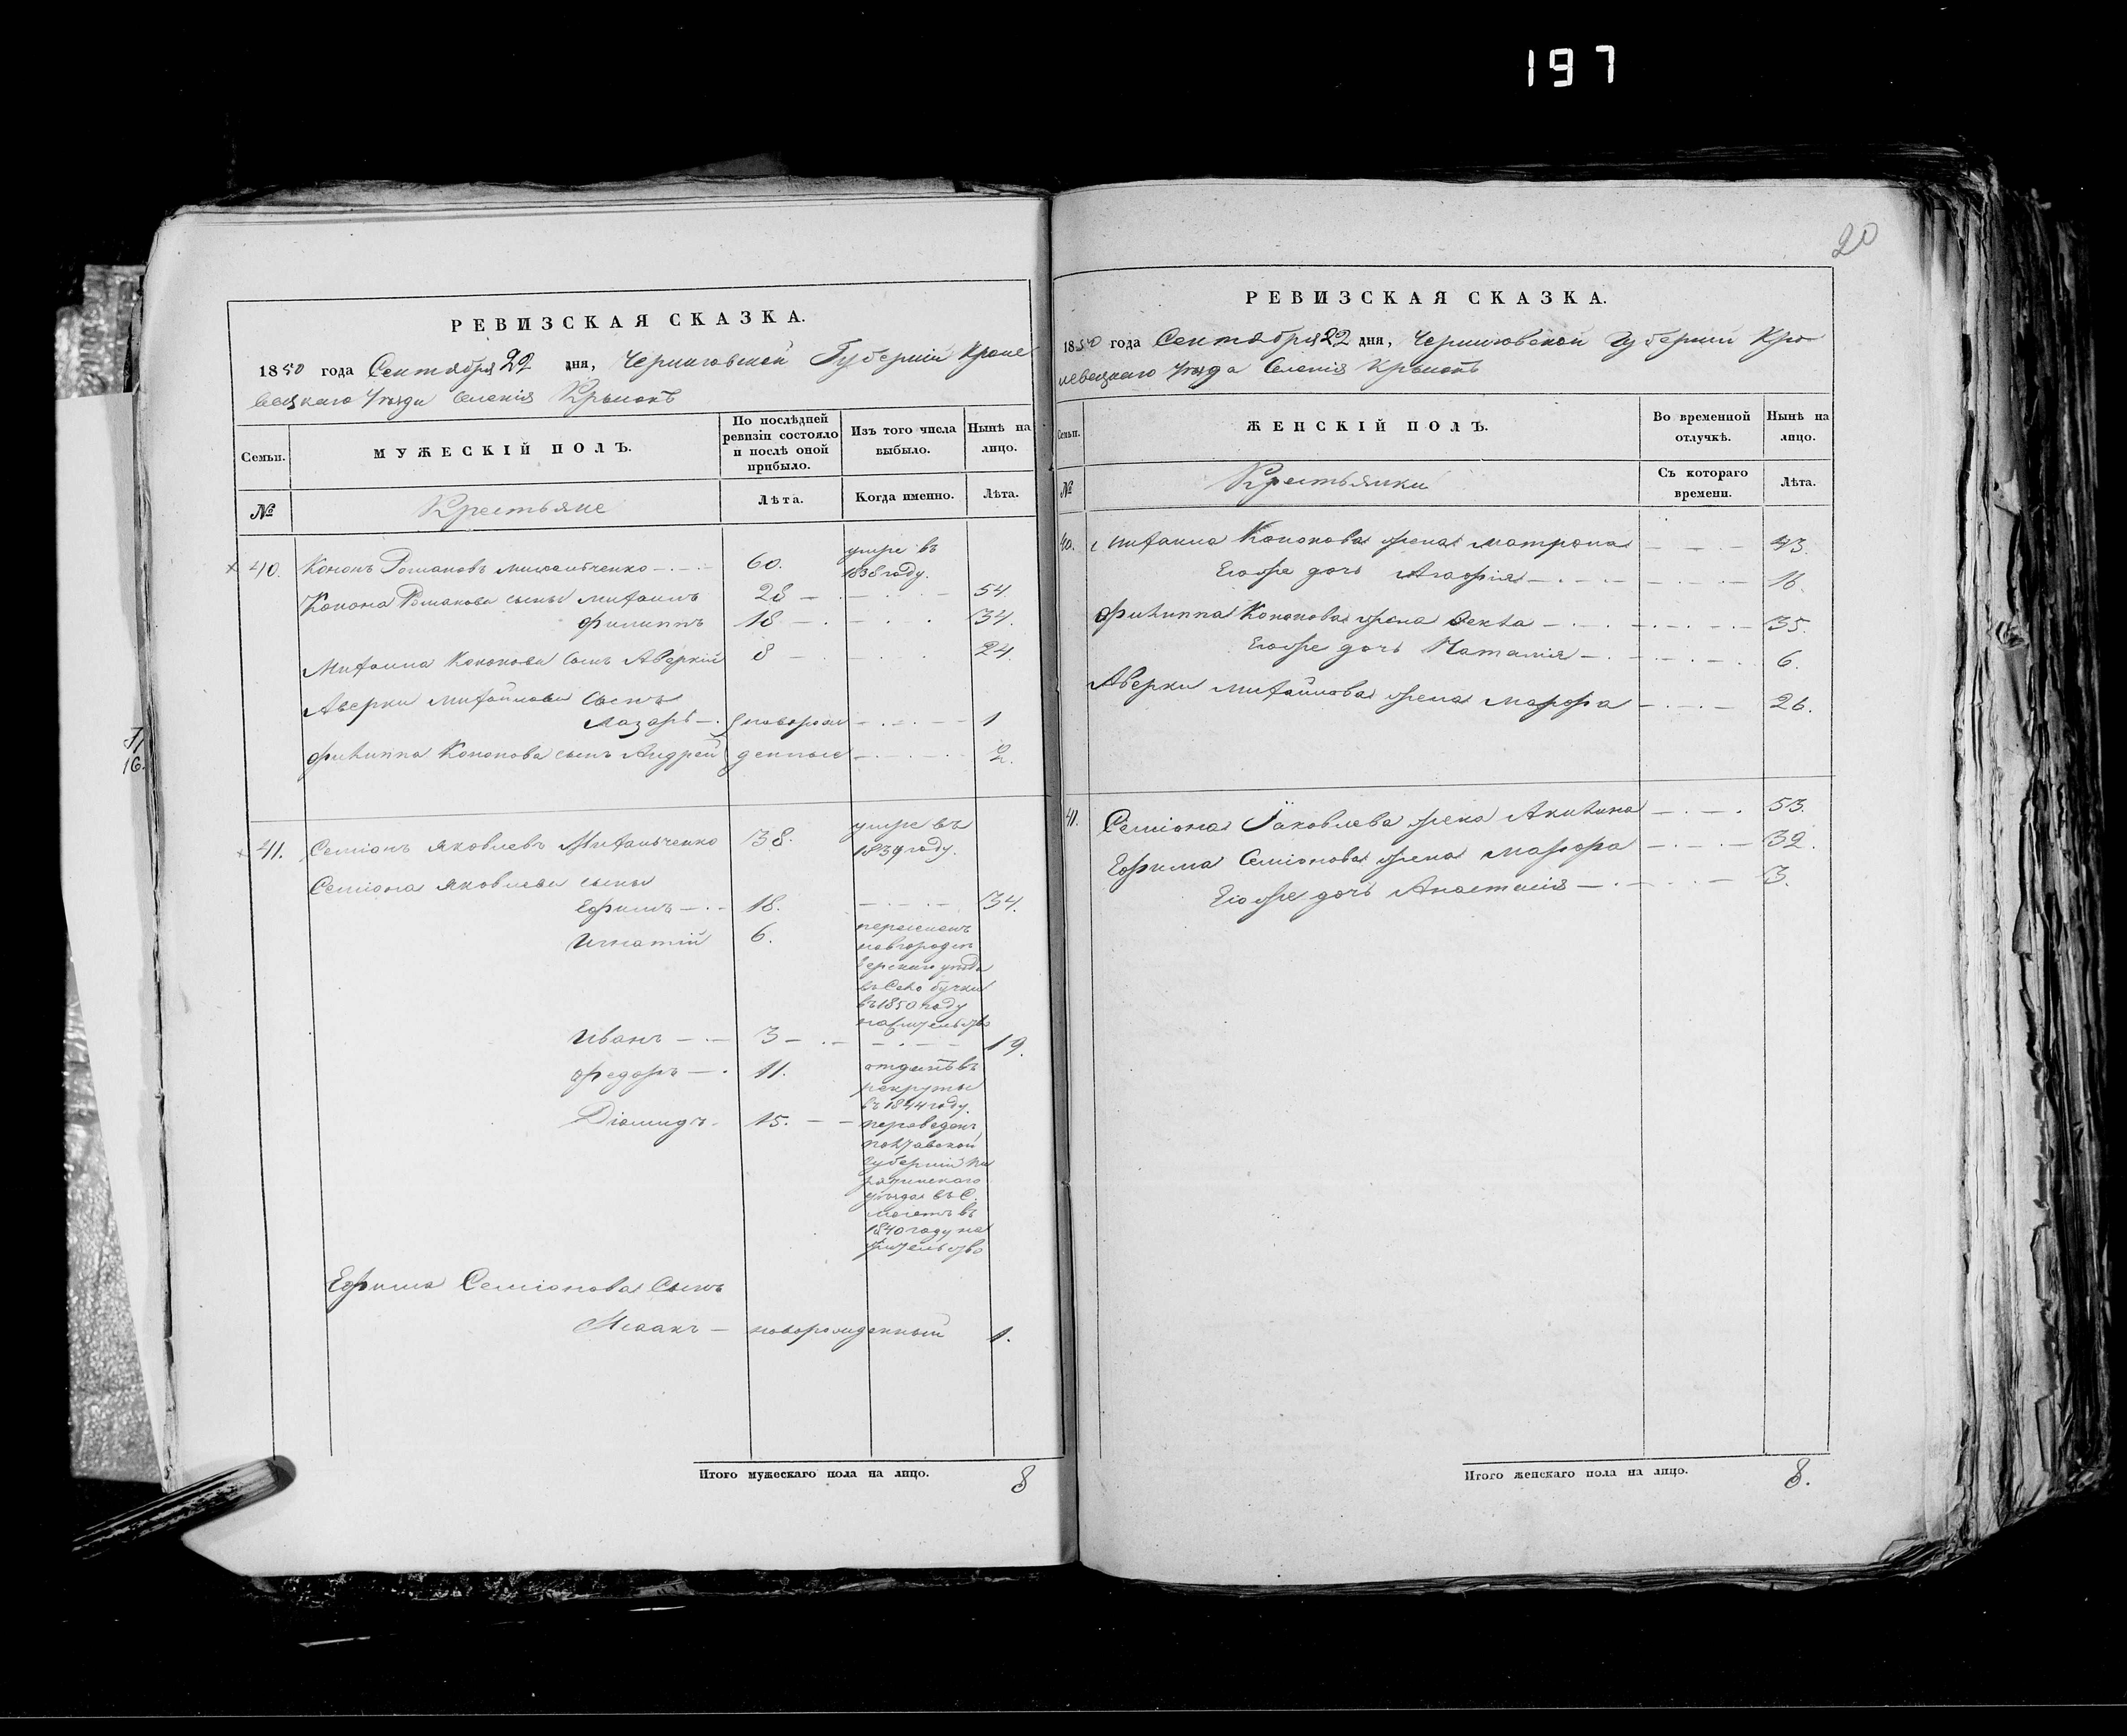 197
20
РЕВИЗСКАЯ СКАЗКА.
1850 года Сентября 22 дня, Черниговской Губерніи Кроле
вецкаго Уѣзда Селенія
Семьи.
МУЖЕСКІЙ ПОЛЪ.
По послѣдней ревизіи состояло и послѣ оной прибыло.
Изъ того числа выбыло.
Нынѣ на лицо.
№
Крестьяне
Лѣта.
Когда именно.
Лѣта.
40. Кононъ Романовъ Михальченко 60. умре въ 1838 году.
Конона Романова сыны Митаилъ 28 54.
Филиппъ 18 34.
Митаила Кононова сынъ Аверкій 8 24.
Аверки Митайлова сынъ
Лазарь новорож 1
Филиппа Кононова сынъ Андрей денные 2.
41. Семіонъ Яковлевъ Митальченко 38. умре въ 1839 году.
Семіона Яковлева сыны
Ефимъ 18. 34.
Игнатій 6.
въ 1850 году
Иванъ 3 19.
Федоръ 11. въ рекруты
въ 1844 году.
Діомидъ 15. переведенъ
полтавской
губерніи Пи
рятинскаго
уѣзда въ С.
въ
1840 году на
жительство
Ефима Семіонова Сынъ
Исаакъ новорожденный 1.
Итого мужескаго пола на лицо. 8
РЕВИЗСКАЯ СКАЗКА.
1850 года Сентября 22 дня, Черниговской Губерніи Кро
левецкаго Уѣзда Селенія
Семьи.
ЖЕНСКІЙ ПОЛЪ.
Во временной отлучкѣ.
Нынѣ на лицо.
№
Крестьянки
Съ котораго времени.
Лѣта.
40. Митаила Кононова жена Матрона 43.
Егоже дочь Агафія 16.
Филиппа Кононова жена Фекла 35.
Егоже дочь Наталія 6.
Аверки Митайлова жена Марфа 26.
41. Семіона Яковлева жена Акилина 53.
Ефима Семіонова жена Марфа 32.
Егоже дочь Анастасія 3.
Итого женскаго пола на лицо. 8.